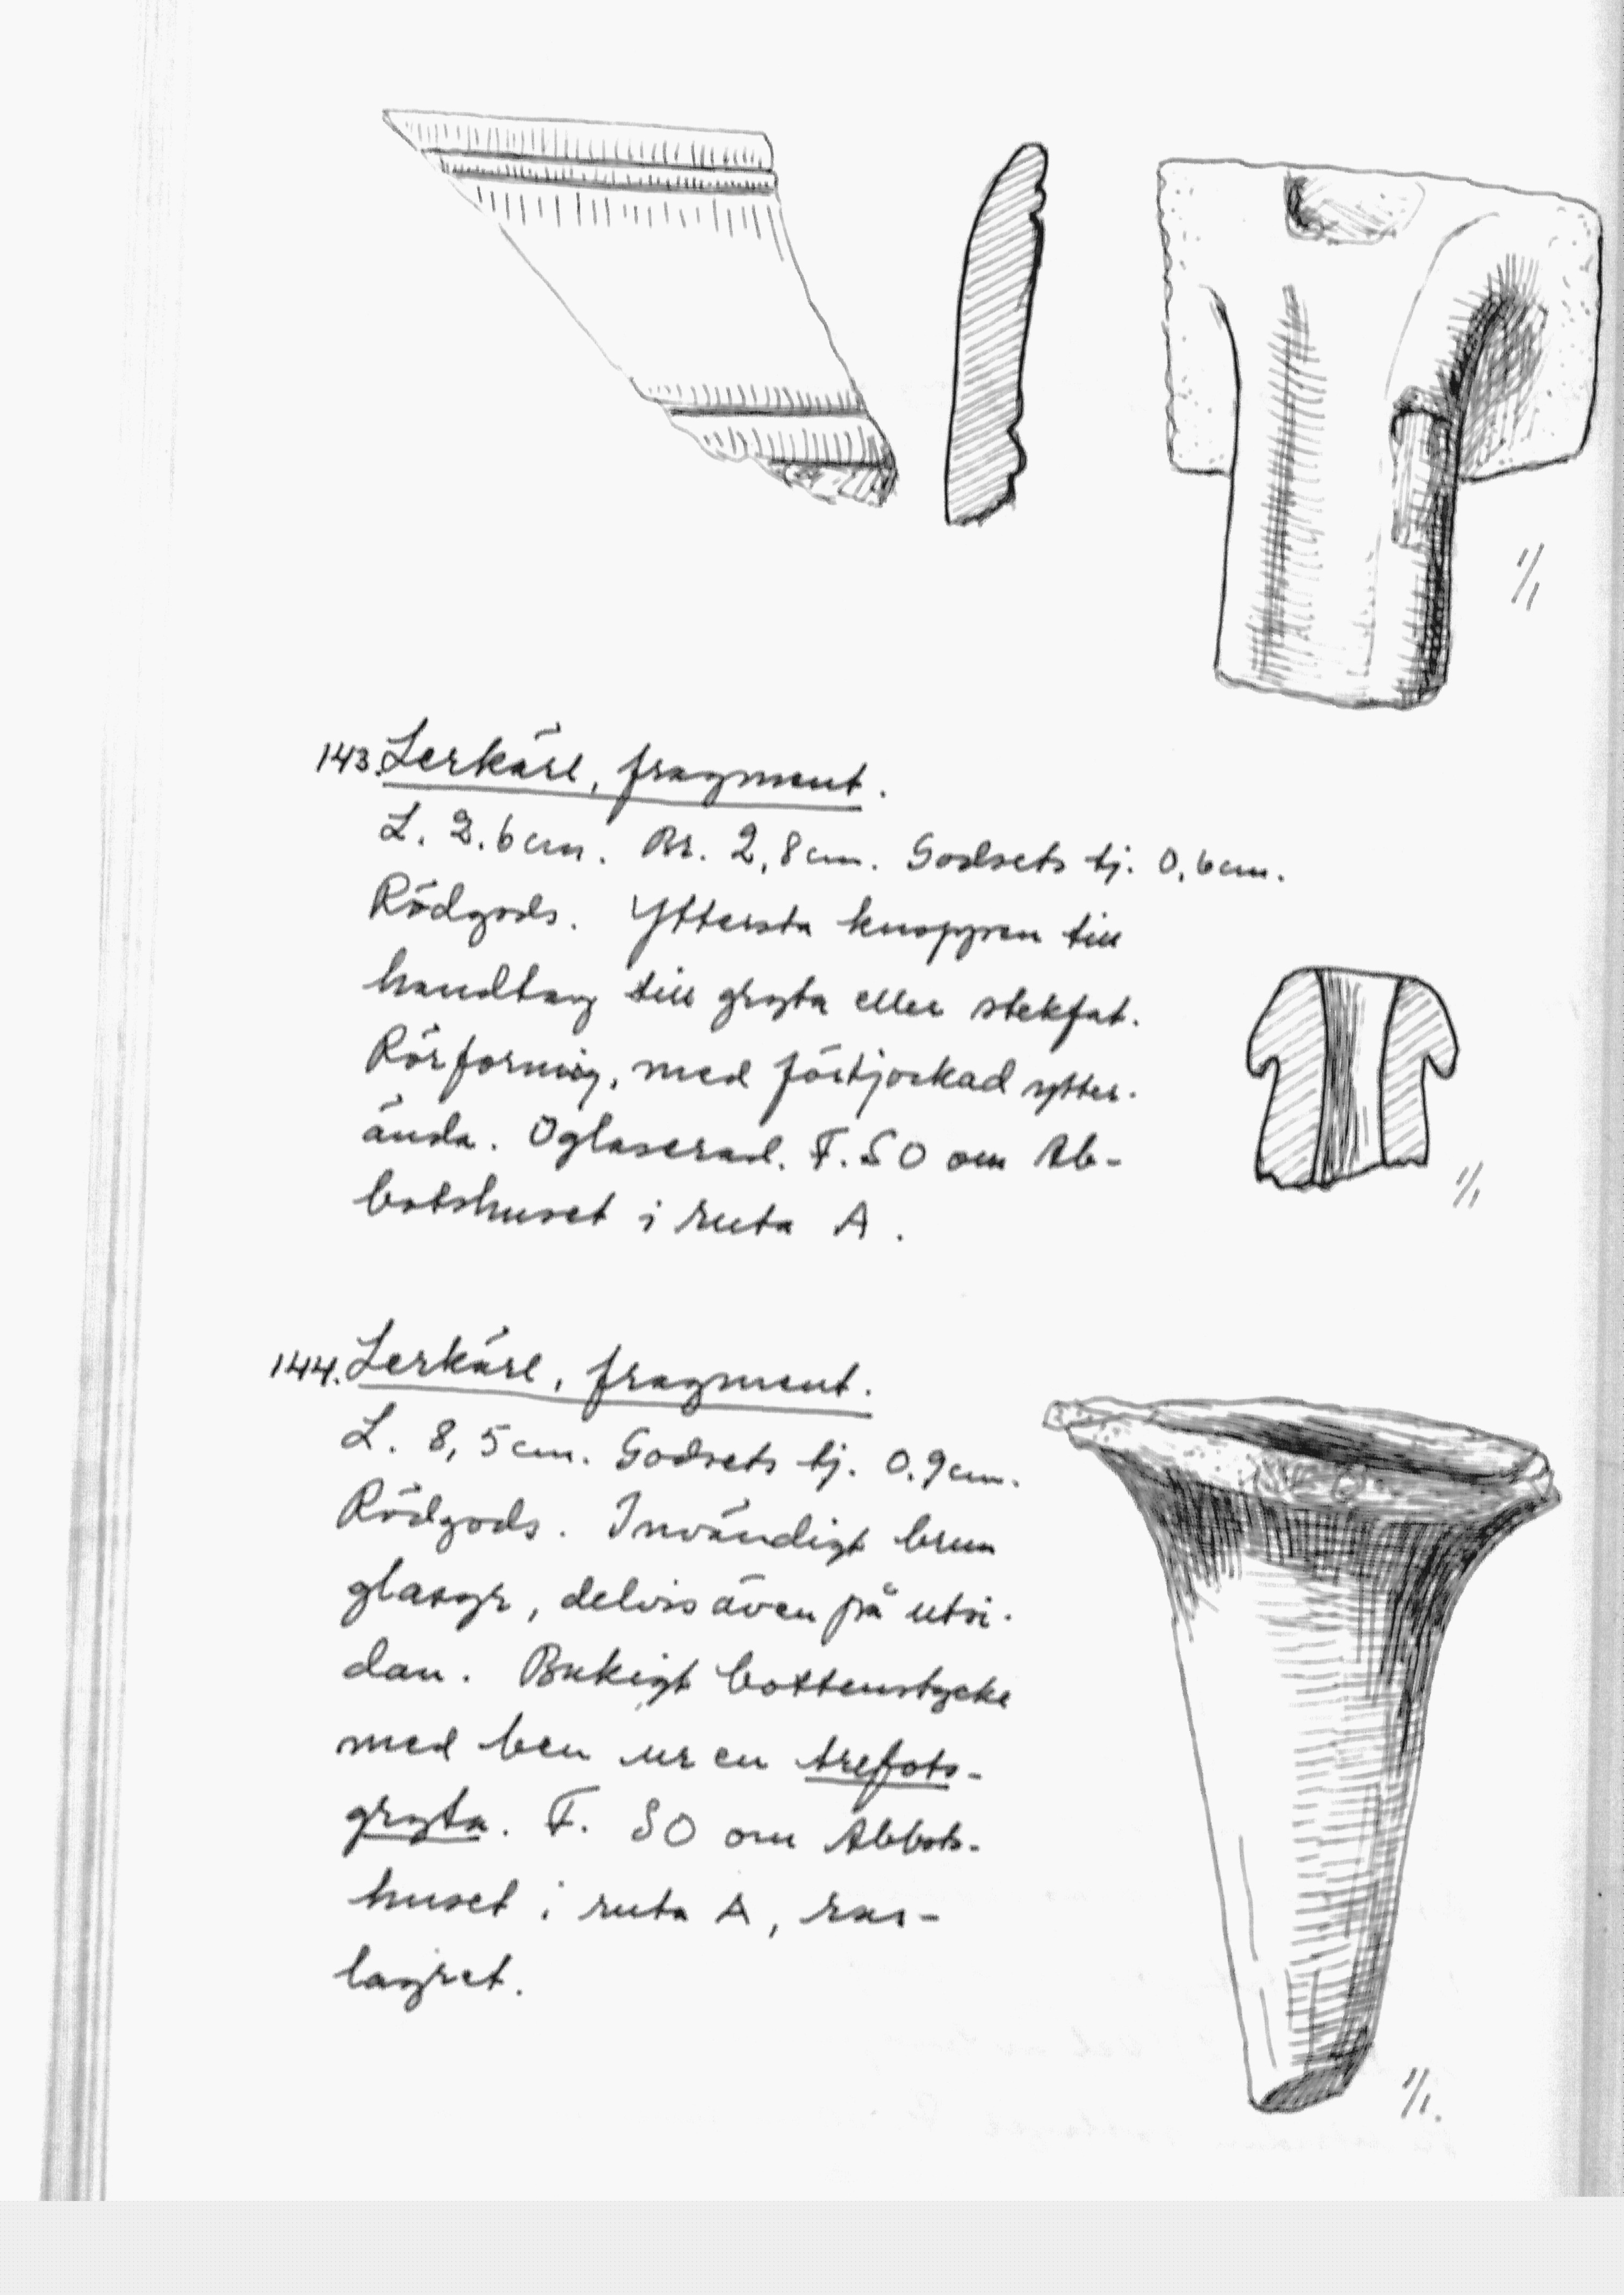 1/1
143. Lerkärl, fragment.
L. 2.6 cm. Br. 2,8 cm. Godsets tj. 0,6 cm.
Rödgods. Yttersta knoppen till
handtag till gryta eller stekfat.
Rörformig, med förtjockad ytter-
ända. Oglaserad. F. SO om Ab-
botshuset i ruta A.
1/1
144. Lerkärl, fragment.
L. 8,5 cm. Godsets tj. 0.9 cm.
Rödgods. Invändigt brun
glasyr, delvis även på utsi-
dan. Bukigt bottenstycke
med ben ur en trefots-
gryta. F. SO om Abbots-
huset i ruta A, ras-
lagret.
1/1.